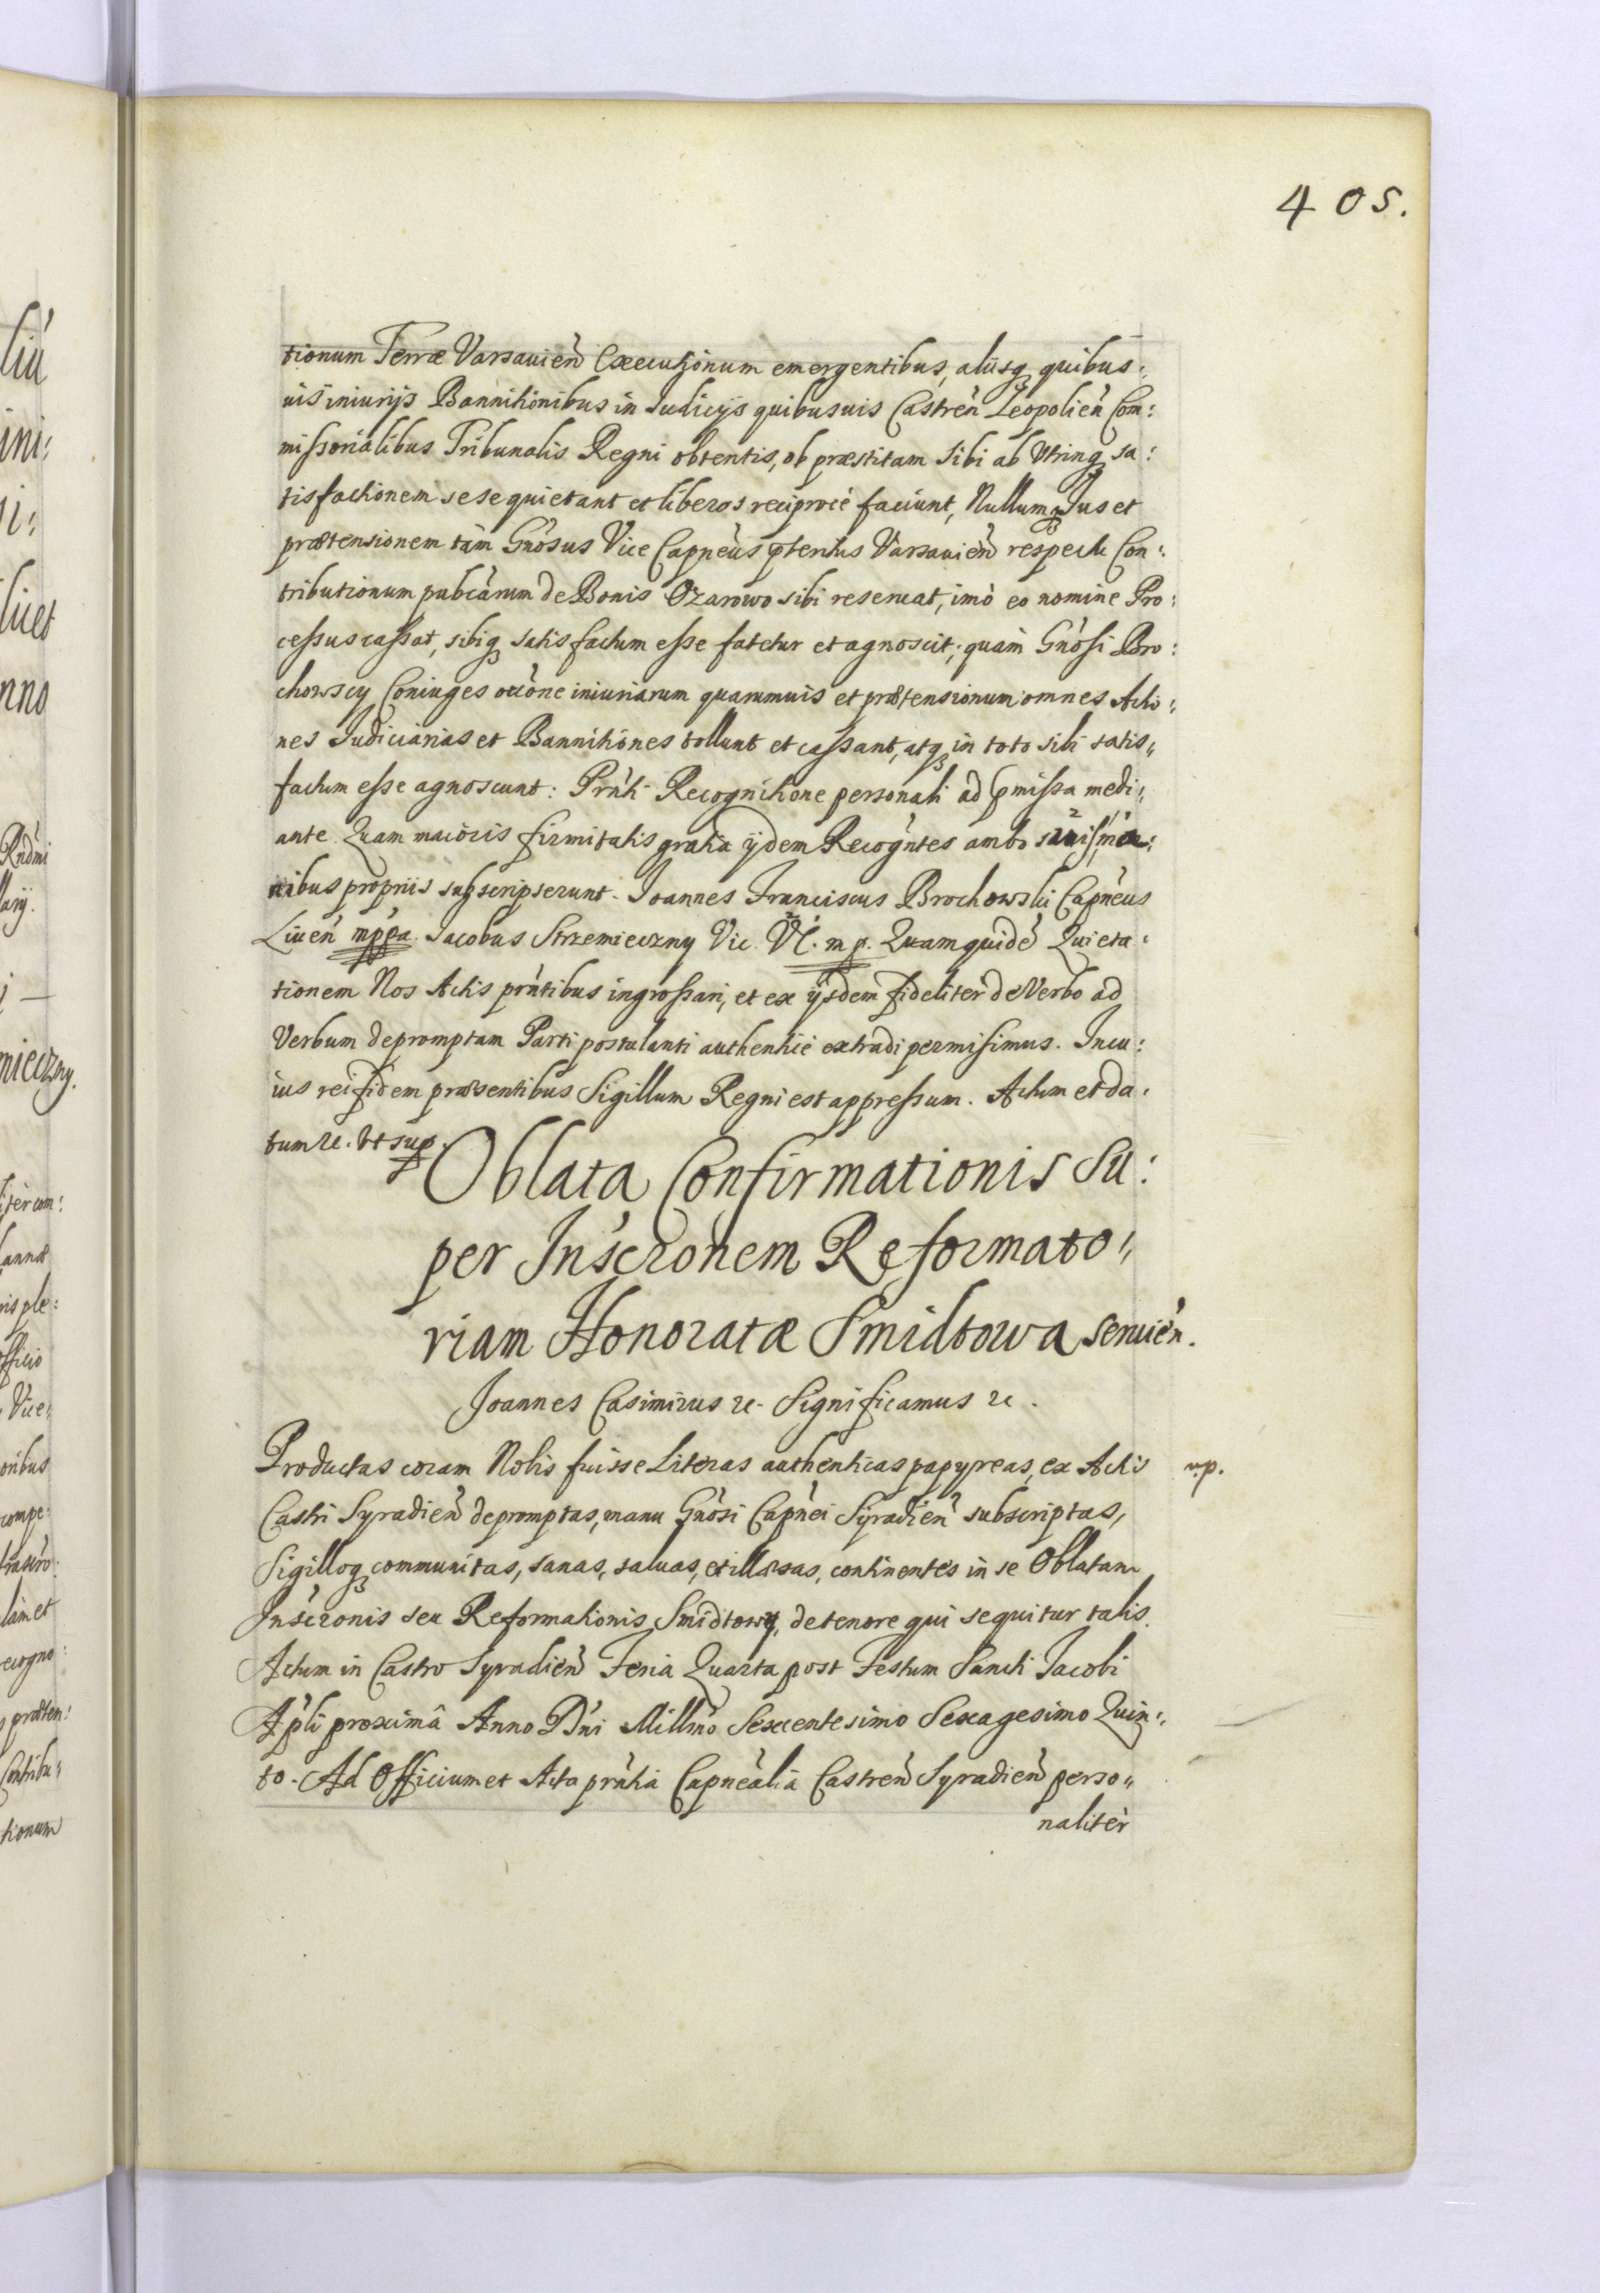 405.
tionum Terræ Varsauien̄ Executionum emergentibus, alijsq̨ quibus:,
uis iniurijs Bannitionibus in Iudicijs quibusuis Castren̄ Leopolien̄ Com:
missorialibus Tribunalis Regni obtentis, ob præstitam sibi ab Vtrinq̨ sa:
tisfactionem sese quietant et liberos reciproce faciunt, Nullumq̨ Ius et
prætensionem tàm Gnosus Vice Capneus Varsauien̄ respectu Con:
tributionum pubcarum de Bonis Ożarowo sibi reseruat, imò eo nomine Pro:
cessus cassat, sibiq̨ satisfactum esse fatetur et agnoscit; quàm Gnosi Bro:
chowscy Coniuges occone iniuriarum quarumuis et prætensionum omnes Actio:,
nes Iudiciarias et Bannitiones tollunt et cassant, atq̨ in toto sibi satis,,
factum esse agnoscunt: Prnti Recognitione personali ad pmissa medi:,
ante. Quam maioris firmitatis gratia ijdem Recogntes ambo suis ma:
nibus propriis subscripserunt. Ioannes Franciscus Brochowski Capneus
Liuen̄ mppa. Iacobus Strzemieczny Vic. m p. Quamquidē Quieta:
tionem Nos Actis prntibus ingrossari, et ex ijsdem fideliter de Verbo ad
Verbum depromptam Parti postulanti authentice extradi permisimus. In cu:
ius rei fidem præsentibus Sigillum Regni est appressum. Actum et da:
tum etc. Vt sup.
Oblata Confirmationis Su:
per Inscronem Reformato:,
riam Honoratæ Smidtowa seruien̄.
Ioannes Casimirus etc. Significamus etc.
Productas coram Nobis fuisse Literas authenticas papyreas, ex Actis
Castri Syradien̄ depromptas, manu Gnosi Capnei Syradien̄ subscriptas,
Sigilloq̨ communitas, sanas, saluas, et illæsas, continentes in se Oblatam
Inscronis seu Reformationis Smidtowy, de tenore qui sequitur talis.
Actum in Castro Syradien̄ Feria Quarta post Festum Sancti Iacobi
Apli proximâ Anno Dni Millmo Sexcentesimo Sexagesimo Quin:,
to. Ad Officium et Acta prntia Capnealia Castren̄ Syradien̄ perso,,
naliter